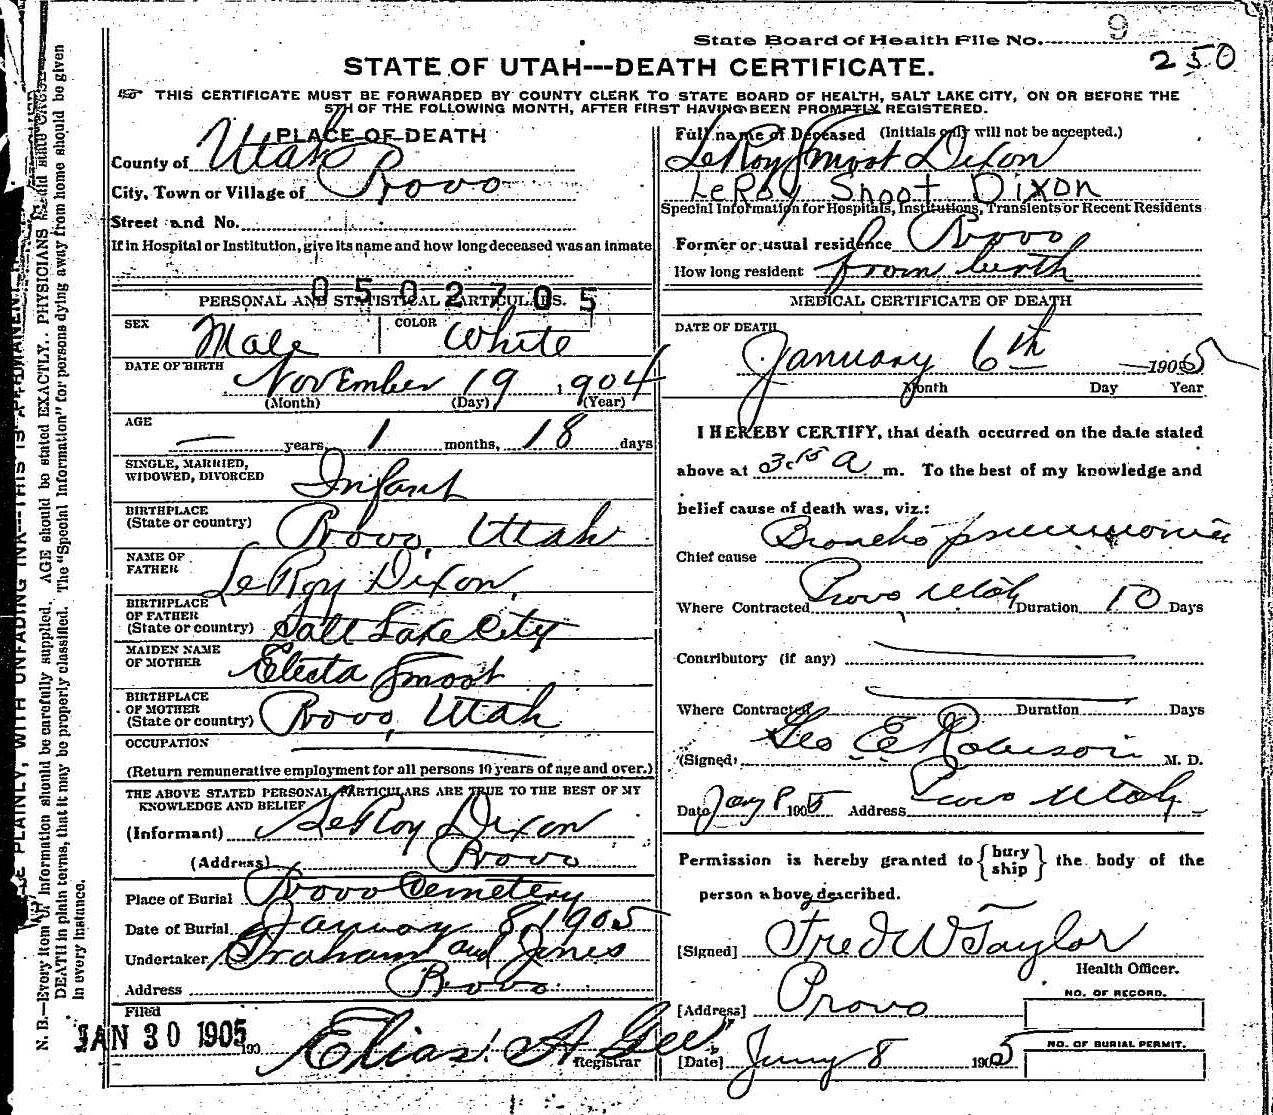 State Board of Health File No. 9
250
STATE OF UTAH---DEATH CERTIFICATE.
THIS CERTIFICATE MUST BE FORWARDED BY COUNTY CLERK TO STATE BOARD OF HEALTH, SALT LAKE CITY, ON OR BEFORE THE
5TH OF THE FOLLOWING MONTH, AFTER FIRST HAVING BEEN PROMPTLY REGISTERED.
PLACE OF DEATH
County of Utah
City, Town or Village of Provo
Street and No.
If in Hospital or Institution, give its name and how long deceased was an inmate
0502705
PERSONAL AND STATISTICAL PARTICULARS.
SEX Male COLOR White
DATE OF BIRTH November 19 1904
(Month) (Day) (Year)
AGE
— years, 1 months, 18 days
SINGLE, MARRIED,
WIDOWED, DIVORCED Infant
BIRTHPLACE
(State or country) Provo, Utah
NAME OF
FATHER LeRoy Dixon,
BIRTHPLACE
OF FATHER
(State or country) Salt Lake City
MAIDEN NAME
OF MOTHER Electa Smoot
BIRTHPLACE
OF MOTHER
(State or country) Provo, Utah
OCCUPATION
(Return remunerative employment for all persons 10 years of age and over.)
THE ABOVE STATED PERSONAL PARTICULARS ARE TRUE TO THE BEST OF MY
KNOWLEDGE AND BELIEF
(Informant) LeRoy Dixon
(Address) Provo
Place of Burial Provo Cemetery
Date of Burial January 8, 1905
Undertaker Graham and Jones
Address Provo
Filed
JAN 30 1905 190
Elias A Gee
Registrar
Full name of Deceased (Initials only will not be accepted.)
LeRoy Smoot Dixon
LeRoy Smoot Dixon
Special Information for Hospitals, Institutions, Transients or Recent Residents
Former or usual residence Provo
How long resident from birth
MEDICAL CERTIFICATE OF DEATH
DATE OF DEATH
January 6th 1905
Month Day Year
I HEREBY CERTIFY, that death occurred on the date stated
above at 3:15 A m. To the best of my knowledge and
belief cause of death was, viz.:
Chief cause Broncho pneumonia
Where Contracted Provo Utah Duration 10 Days
Contributory (if any)
Where Contracted Duration Days
(Signed) Geo E Robison M. D.
Date Jany 8 1905 Address Provo Utah
Permission is hereby granted to { bury ship } the body of the
person above described.
[Signed] Fred W Taylor
Health Officer.
[Address] Provo
NO. OF RECORD.
[Date] Jany 8 1905
NO. OF BURIAL PERMIT.
N. B.—Every item of information should be carefully supplied. AGE should be stated EXACTLY. PHYSICIANS should state CAUSE OF
DEATH in plain terms, that it may be properly classified. The "Special Information" for persons dying away from home should be given
in every instance.
PLAINLY, WITH UNFADING INK---THIS IS A PERMANENT